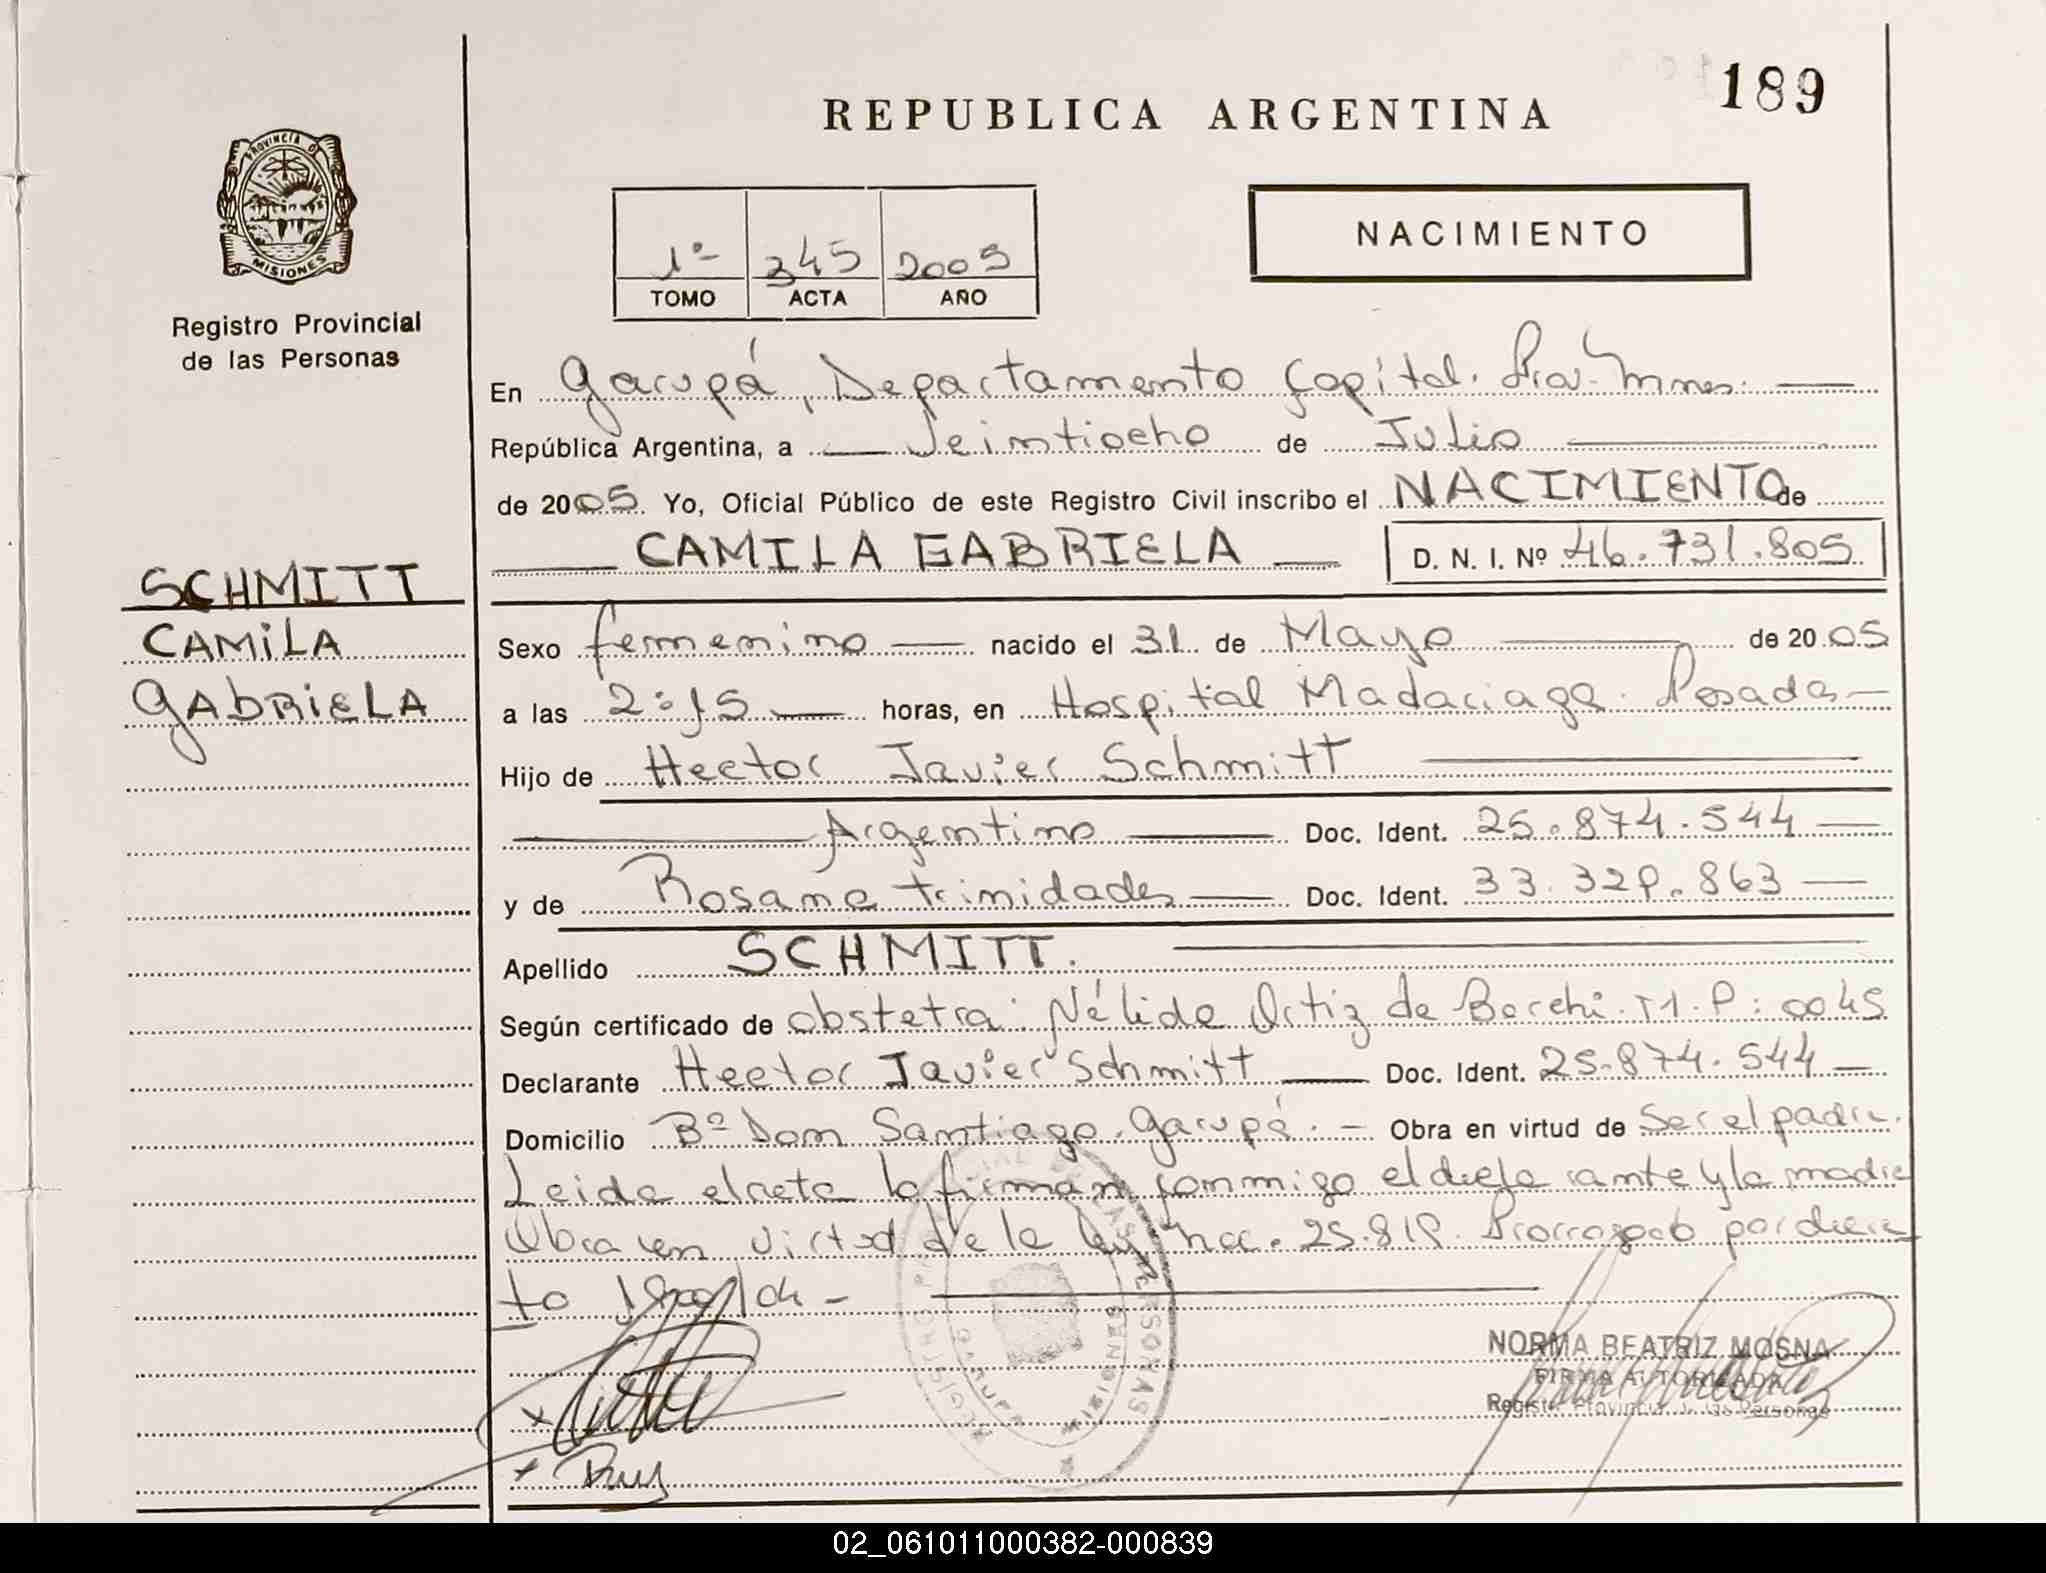 189
REPUBLICA ARGENTINA
PROVINCIA D
MISIONES
Registro Provincial
de las Personas
NACIMIENTO
1º 345 2005
TOMO ACTA AÑO
En Garupá, Departamento Capital. Prov. Mnes.
República Argentina, a Veintiocho de Julio
de 2005. Yo, Oficial Público de este Registro Civil inscribo el NACIMIENTO de
CAMILA GABRIELA D. N. I. Nº 46.731.805
SCHMITT
CAMILA
GABRIELA
Sexo femenino nacido el 31 de Mayo de 2005
a las 2:15 horas, en Hospital Madariaga. Posadas
Hijo de Hector Javier Schmitt
Argentino Doc. Ident. 25.874.544
y de Rosana Trinidade Doc. Ident. 33.329.863
Apellido SCHMITT.
Según certificado de obstetra: Nélida Ortiz de M.P: 0045
Declarante Hector Javier Schmitt Doc. Ident. 25.874.544
Domicilio Bº Don Santiago. Garupá. Obra en virtud de Ser el padre.
Leida el acta la firman conmigo el declarante y la madre
Obra en virtud de la ley nac. 25.819. por decre
to
NORMA BEATRIZ MOSNA
FIRMA AUTORIZADA
Registro Provincial de las Personas
02_061011000382-000839